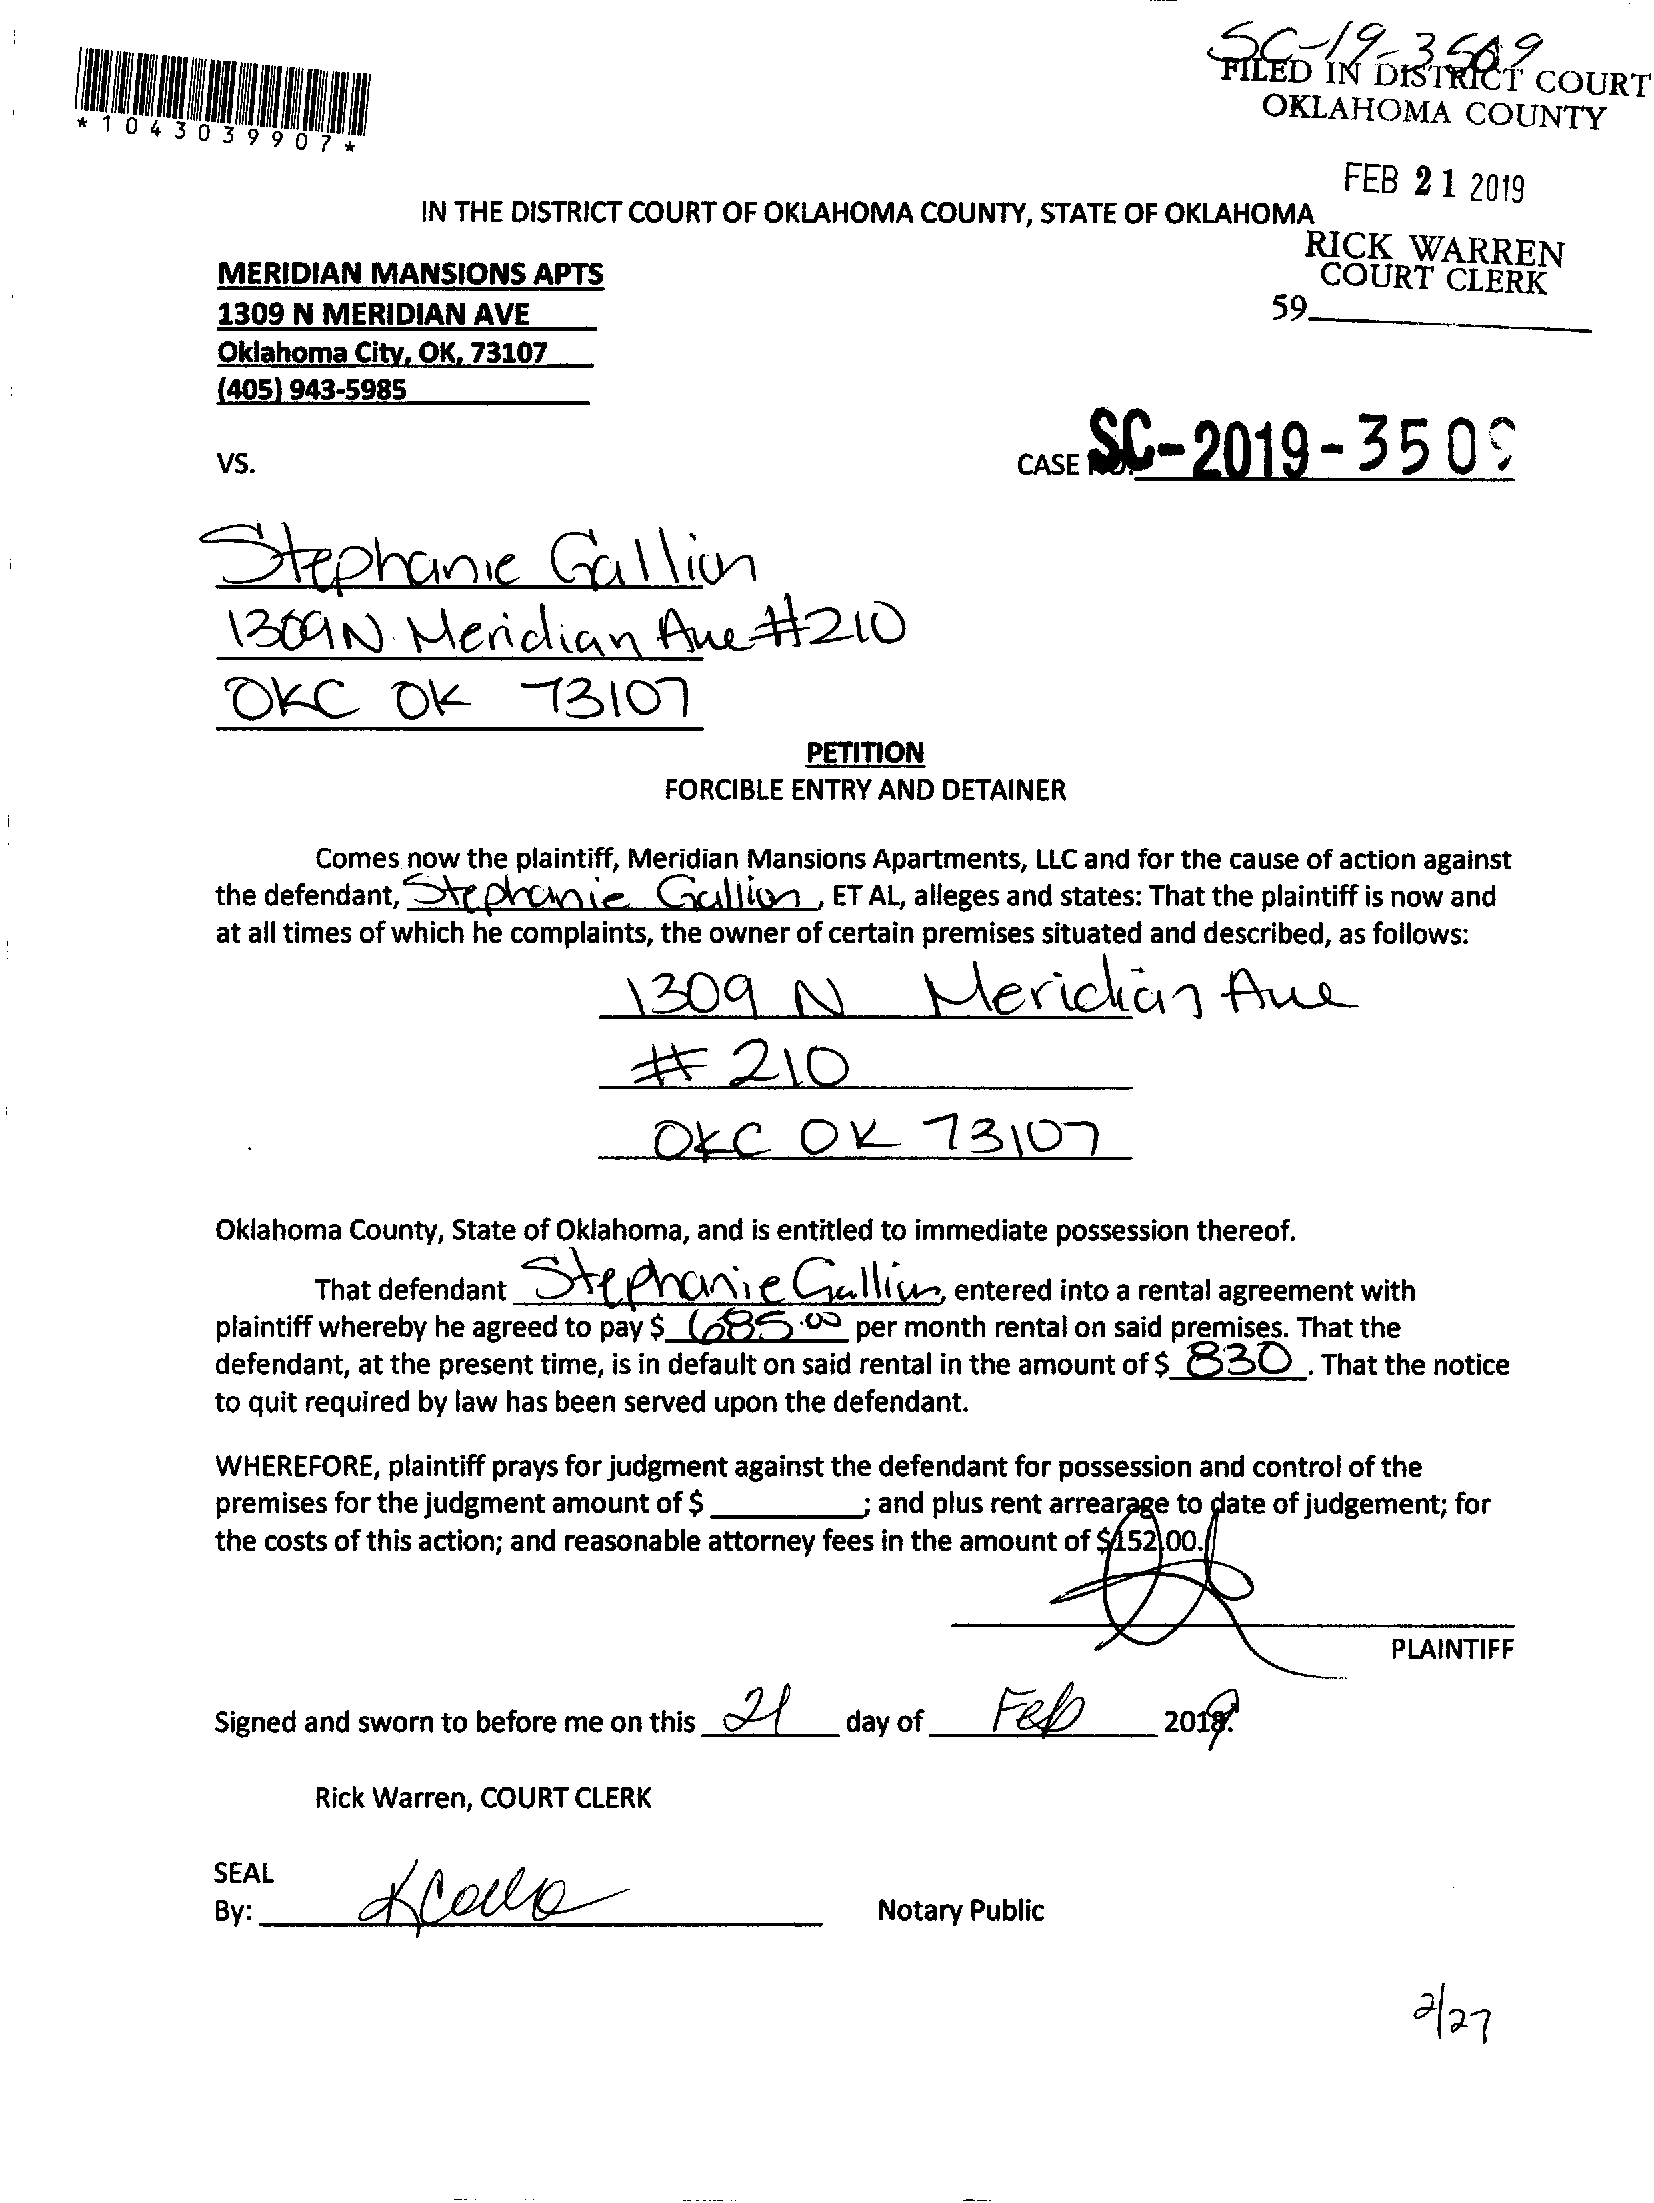 SC-19-3509
FILED IN DISTRICT COURT
OKLAHOMA COUNTY
*1043039907*
FEB 21 2019
IN THE DISTRICT COURT OF OKLAHOMA COUNTY, STATE OF OKLAHOMA
RICK WARREN
COURT CLERK
59
MERIDIAN MANSIONS APTS
1309 N MERIDIAN AVE
Oklahoma City, OK, 73107
(405) 943-5985
VS.
CASE NO. SC-2019-3509
Stephanie Gallion
1309 N Meridian Ave #210
OKC OK 73107
PETITION
FORCIBLE ENTRY AND DETAINER
Comes now the plaintiff, Meridian Mansions Apartments, LLC and for the cause of action against
the defendant, Stephanie Gallion, ET AL, alleges and states: That the plaintiff is now and
at all times of which he complaints, the owner of certain premises situated and described, as follows:
1309 N Meridian Ave
# 210
OKC OK 73107
Oklahoma County, State of Oklahoma, and is entitled to immediate possession thereof.
That defendant Stephanie Gallion, entered into a rental agreement with
plaintiff whereby he agreed to pay $ 685.00 per month rental on said premises. That the
defendant, at the present time, is in default on said rental in the amount of $ 830. That the notice
to quit required by law has been served upon the defendant.
WHEREFORE, plaintiff prays for judgment against the defendant for possession and control of the
premises for the judgment amount of $ ; and plus rent arrearage to date of judgement; for
the costs of this action; and reasonable attorney fees in the amount of $152.00.
PLAINTIFF
Signed and sworn to before me on this 21 day of Feb 2019.
Rick Warren, COURT CLERK
SEAL
By: Notary Public
2/27